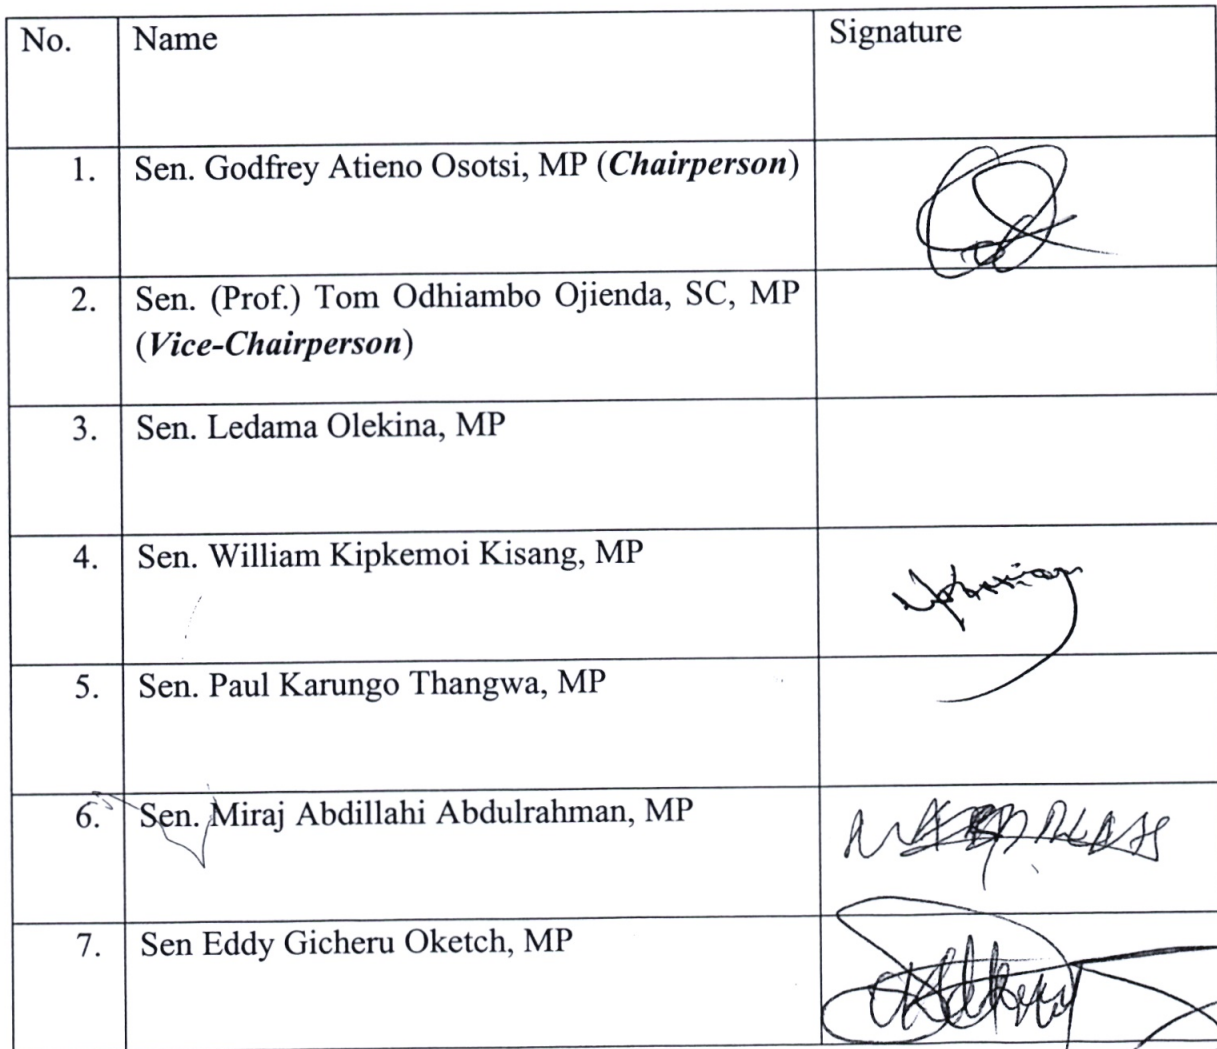 No. Name Signature
1. Sen. Godfrey Atieno Osotsi, MP (Chairperson)
2. Sen. (Prof.) Tom Odhiambo Ojienda, SC, MP
(Vice-Chairperson)
3. Sen. Ledama Olekina, MP
4. Sen. William Kipkemoi Kisang, MP
5. Sen. Paul Karungo Thangwa, MP
6. Sen. Miraj Abdillahi Abdulrahman, MP
7. Sen Eddy Gicheru Oketch, MP